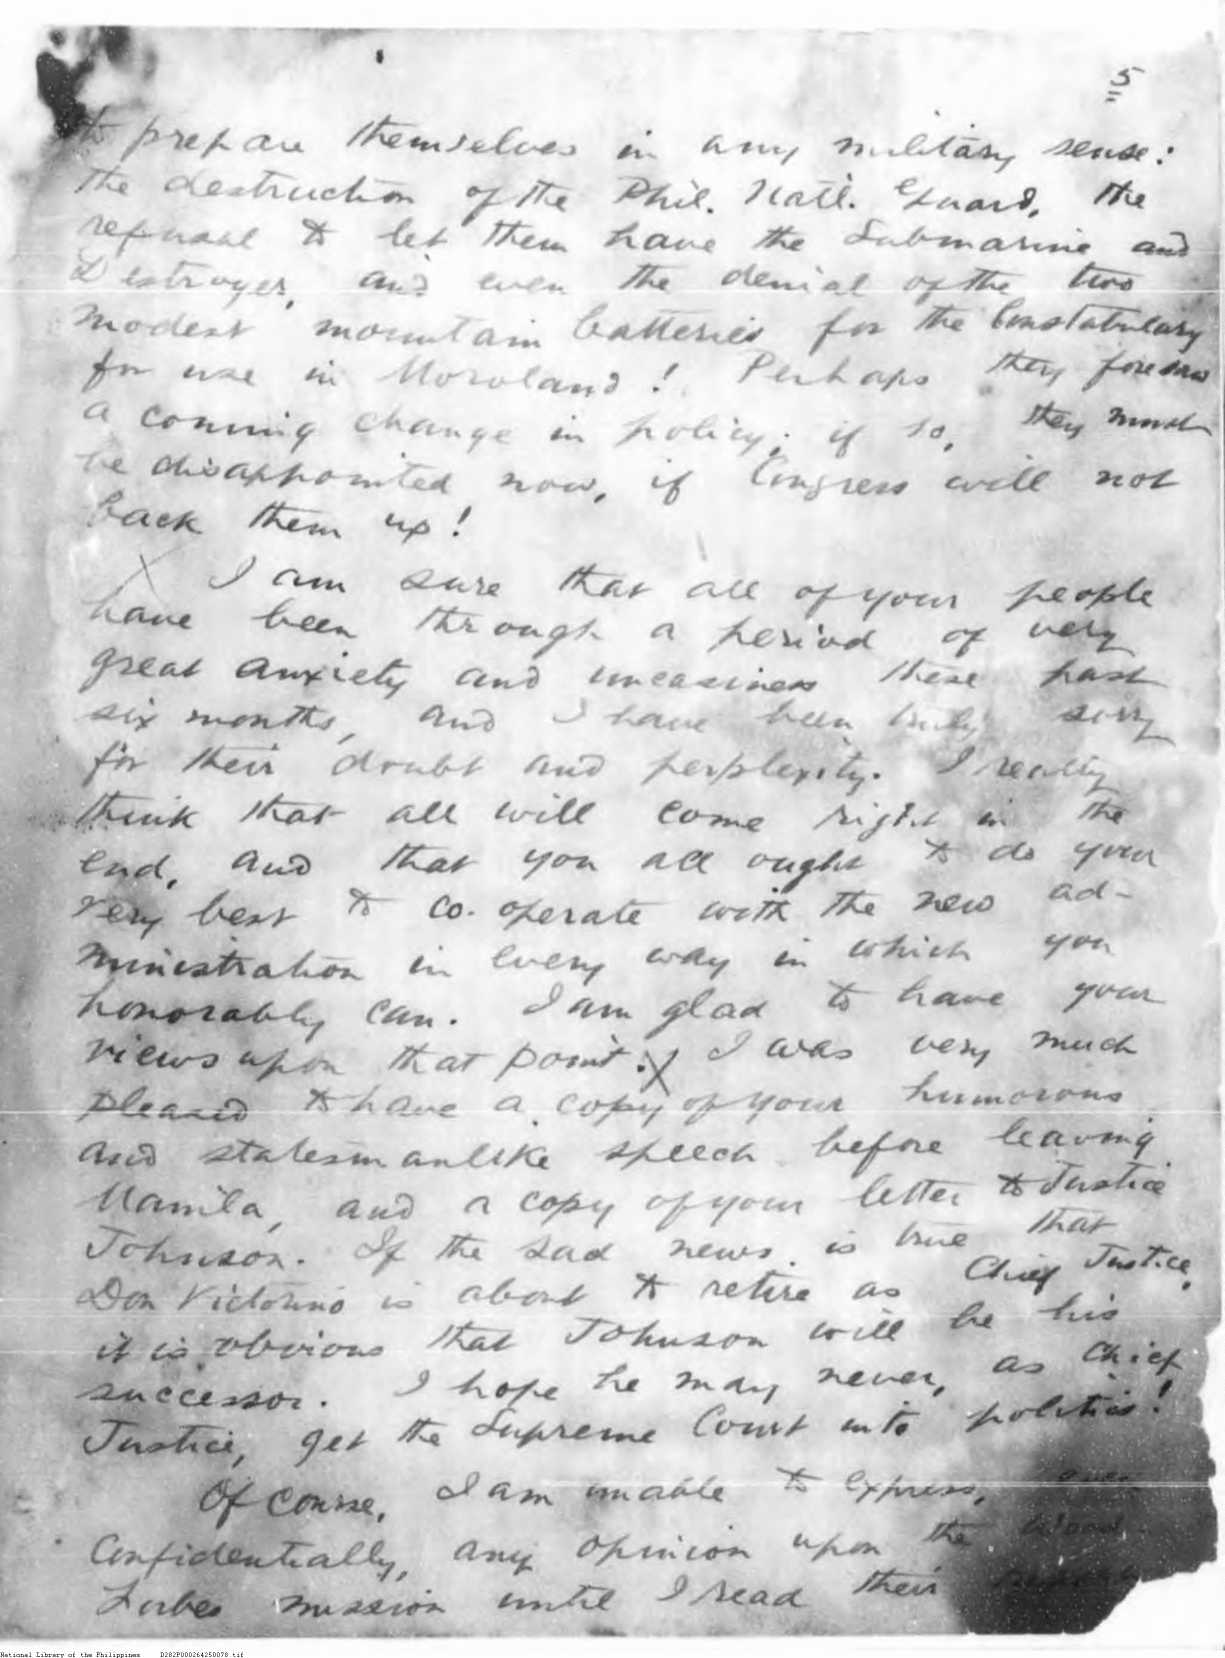 5
to prepare themselves in any military sense:
the destruction of the Phil. Natl. Guard, the
refusal to let them have the Submarine and
Destroyer, and even the denial of the two
modest mountain batteries for the Constabulary
for use in Moroland! Perhaps they foresaw
a coming change in policy; if so, they must
be disappointed now, if Congress will not
back them up!
X I am sure that all of your people
have been through a period of very
great anxiety and uneasiness these past
six months, and I have been truly sorry
for their doubt and perplexity. I really
think that all will come right in the
end, and that you all ought to do your
very best to co-operate with the new ad-
ministration in every way in which you
honorably can. I am glad to have your
views upon that point. X I was very much
pleased to have a copy of your humorous
and statesmanlike speech before leaving
Manila, and a copy of your letter to Justice
Johnson. If the sad news is true that
Don Victorino is about to retire as Chief Justice,
it is obvious that Johnson will be his
successor. I hope he may never, as Chief
Justice, get the Supreme Court into politics!
Of course, I am unable to express, even
confidentially, any opinion upon the Wood-
Forbes mission until I read their
National Library of the Philippines D282P000264250078.tif